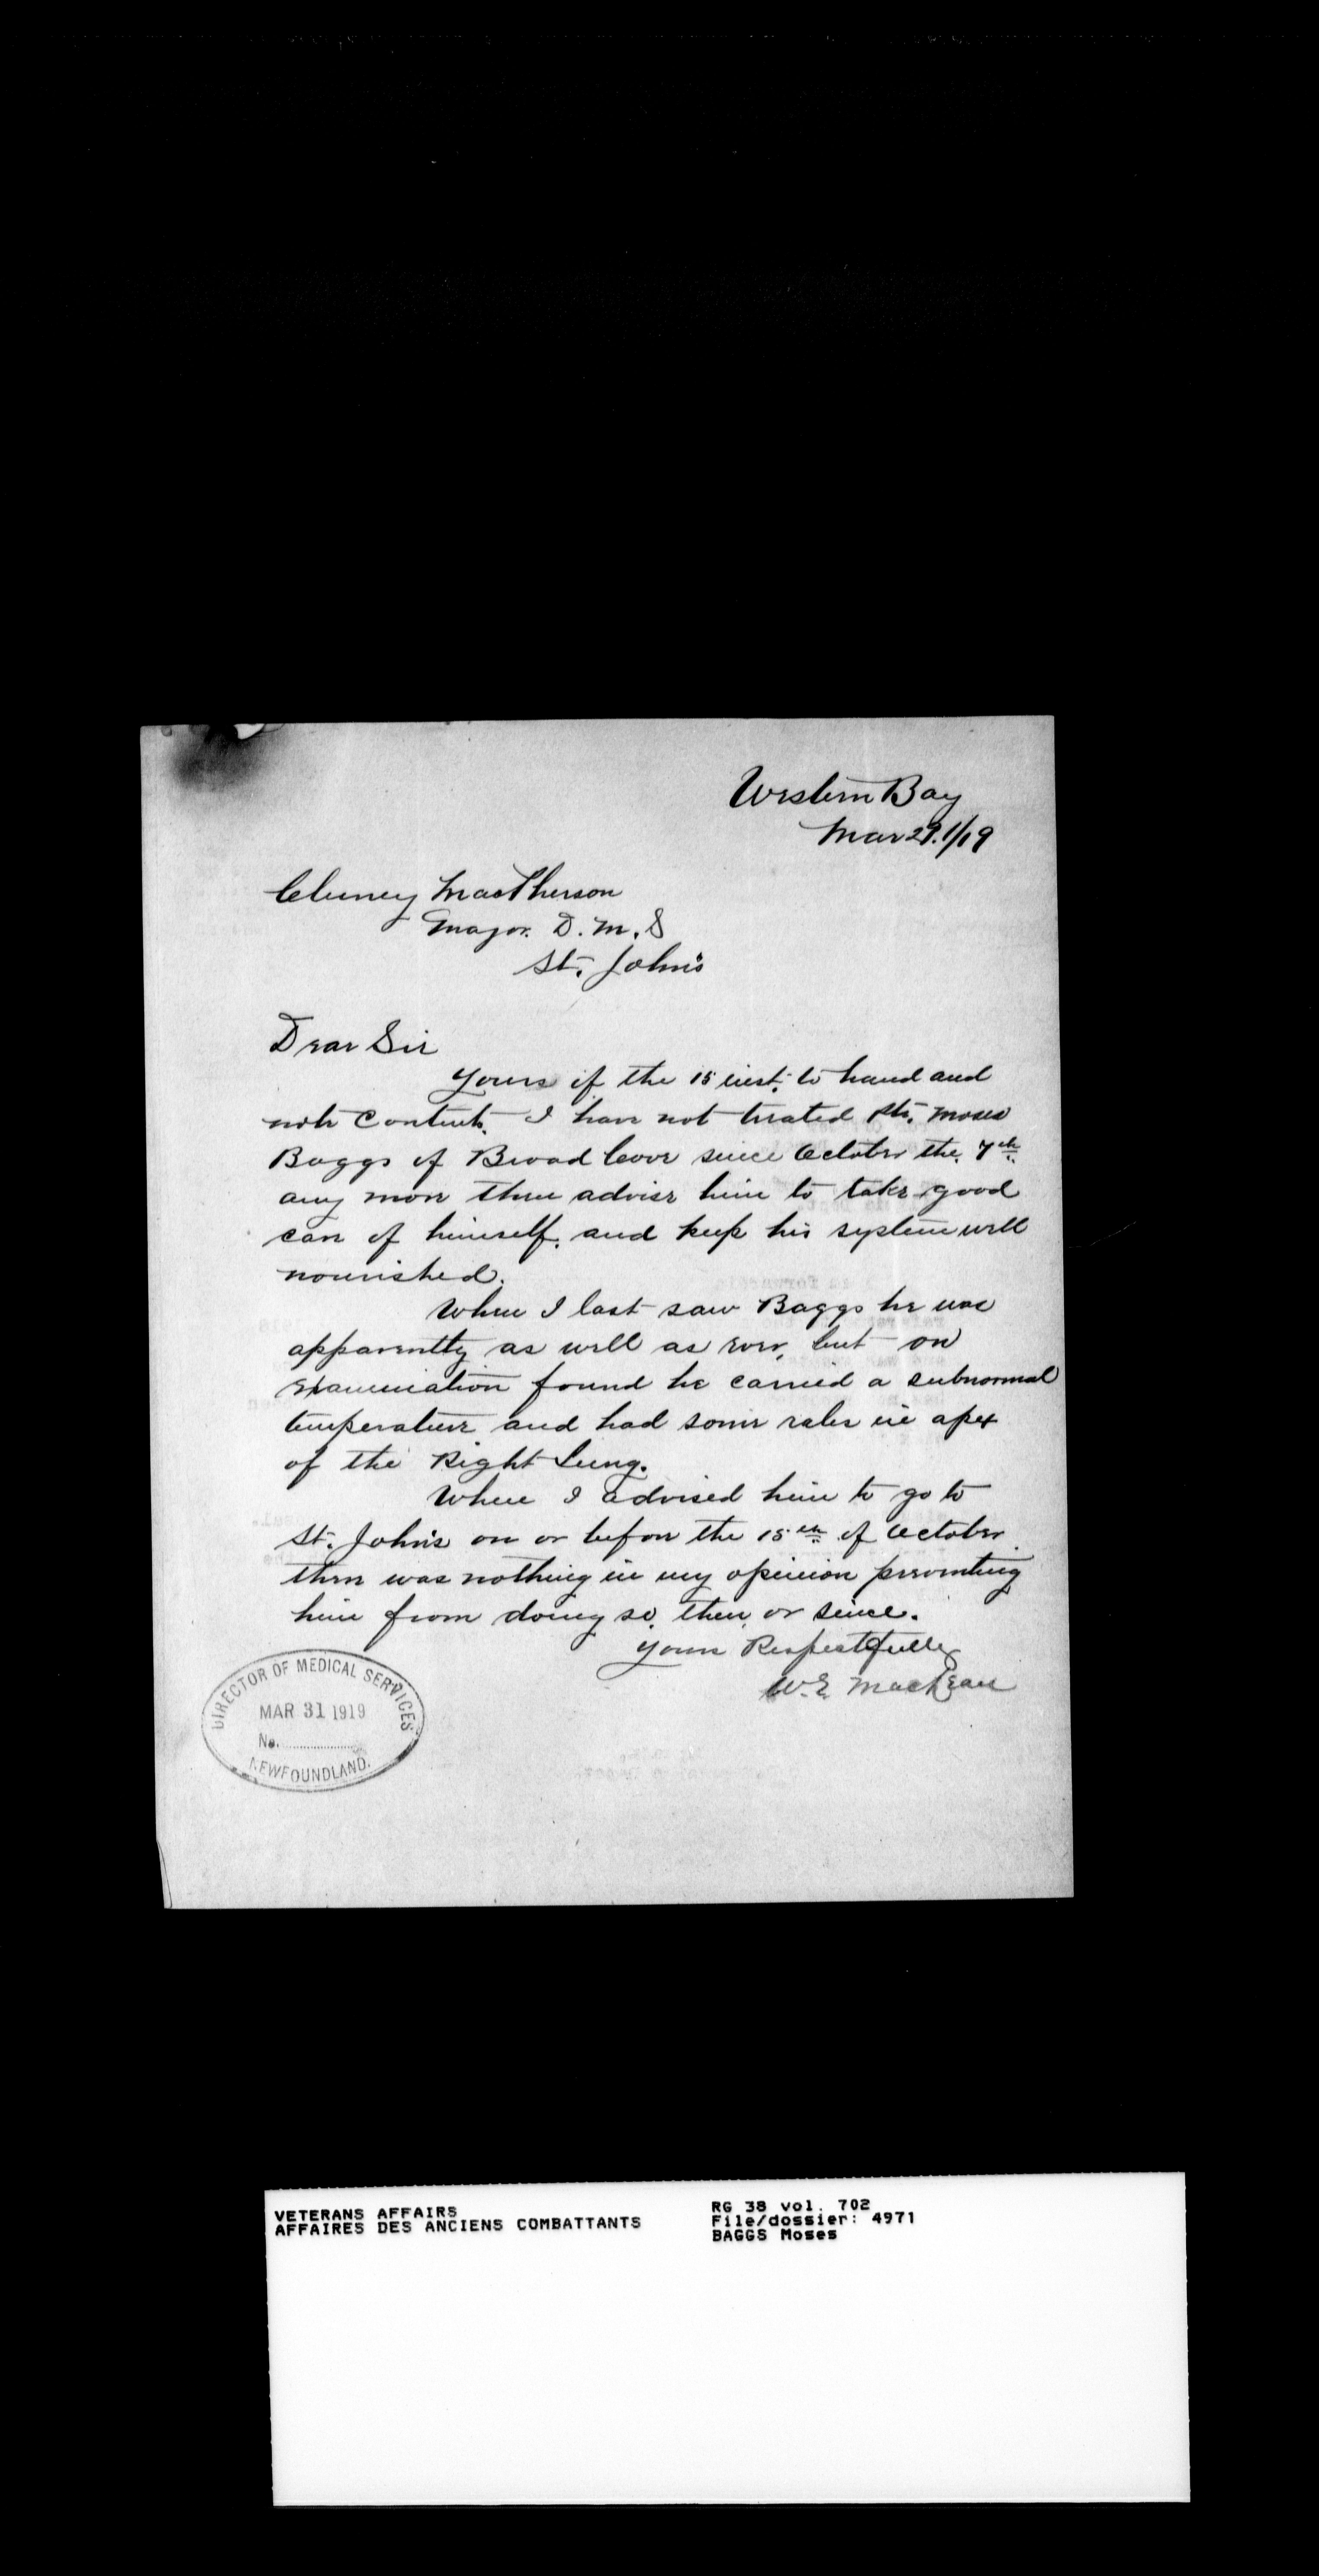 Western Bay
Mar 29.1/19
Cluney MacPherson
Major. D.M.S
St. John's
Dear Sir
Yours of the 15 inst. to hand and
note contents. I have not treated Pte. Moses
Baggs of Broad Cove since October the 7th
any more than advise him to take good
care of himself. and keep his system well
nourished.
When I last saw Baggs he was
apparently as well as ever, but on
examination found he carried a subnormal
temperature and had some rales in apex
of the Right Lung.
When I advised him to go to
St. John's on or before the 15th of October
there was nothing in my opinion preventing
him from doing so. then or since.
Yours Respectfully
W.E. MacKean
DIRECTOR OF MEDICAL SERVICES
MAR 31 1919
No.
NEWFOUNDLAND.
VETERANS AFFAIRS
AFFAIRES DES ANCIENS COMBATTANTS
RG 38 vol. 702
File/dossier: 4971
BAGGS Moses